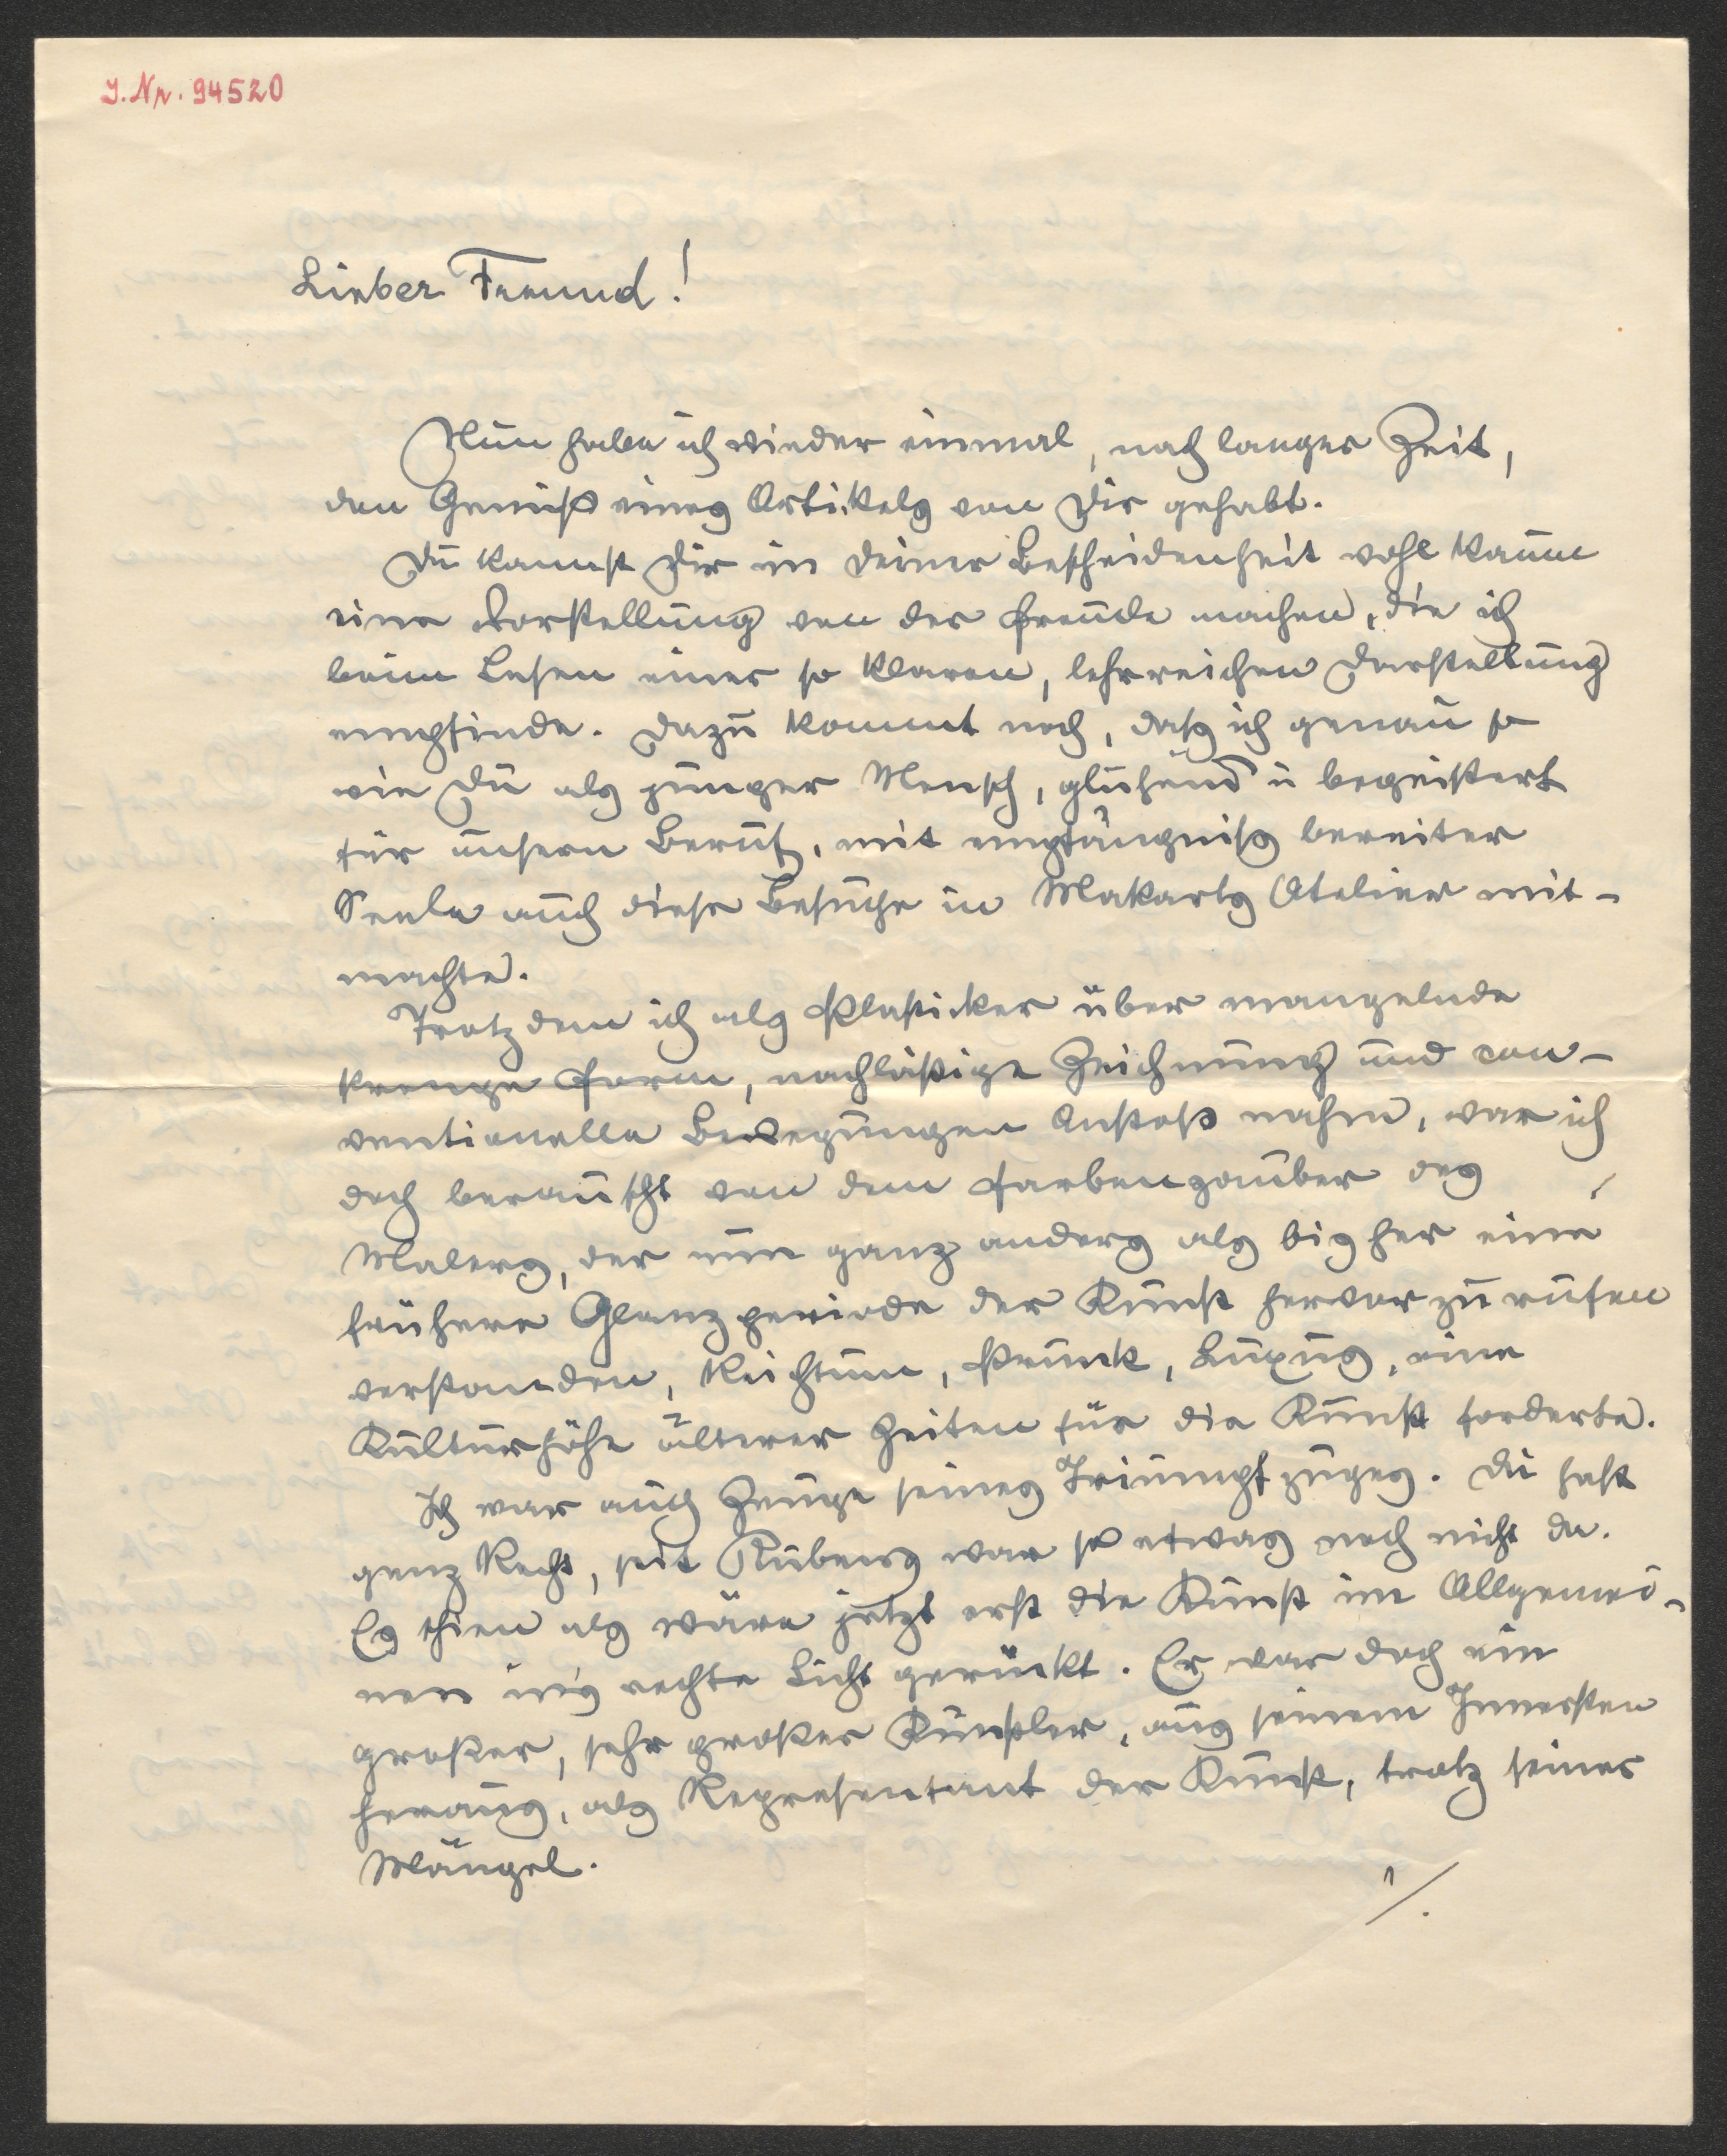 J. Nr. 94520
Lieber Freund!
Nun habe ich wieder einmal, nach langer Zeit,
den Genuß eines Artikels von Dir gehabt.
Du kannst Dir in Deiner Bescheidenheit wohl kaum
eine Vorstellung von der Freude machen, die ich
beim Lesen einer so klaren, lehrreichen Darstellung
empfinde. Dazu kommt noch, daß ich genau so
wie Du als junger Mensch, glühend u begeistert
für unsern Beruf, mit empfängniß bereiter
Seele auch diese Besuche in Makarts Atelier mit-
machte.
Trotzdem ich als Plastiker über mangelnde
strenge Form, nachläßige Zeichnung und con-
ventionelle Bewegungen Anstoß nahm, war ich
doch berauscht von dem Farbenzauber des
Malers, der nun ganz anders als bisher eine
frühere Glanzperiode der Kunst hervorzurufen
verstanden, Reichtum, Prunk, Luxus, eine
Kulturhöhe älterer Zeiten für die Kunst forderte.
Ich war auch Zeuge seines Triumpfzuges. Du hast
ganz Recht, seit Rubens war so etwas noch nicht da.
Es schien als wäre jetzt erst die Kunst im Allgemei-
nen in's rechte Licht gerückt. Er war doch ein
großer, sehr großer Künstler, aus seinem Innersten
heraus, als Representant der Kunst, trotz seiner
Mängel.
./.